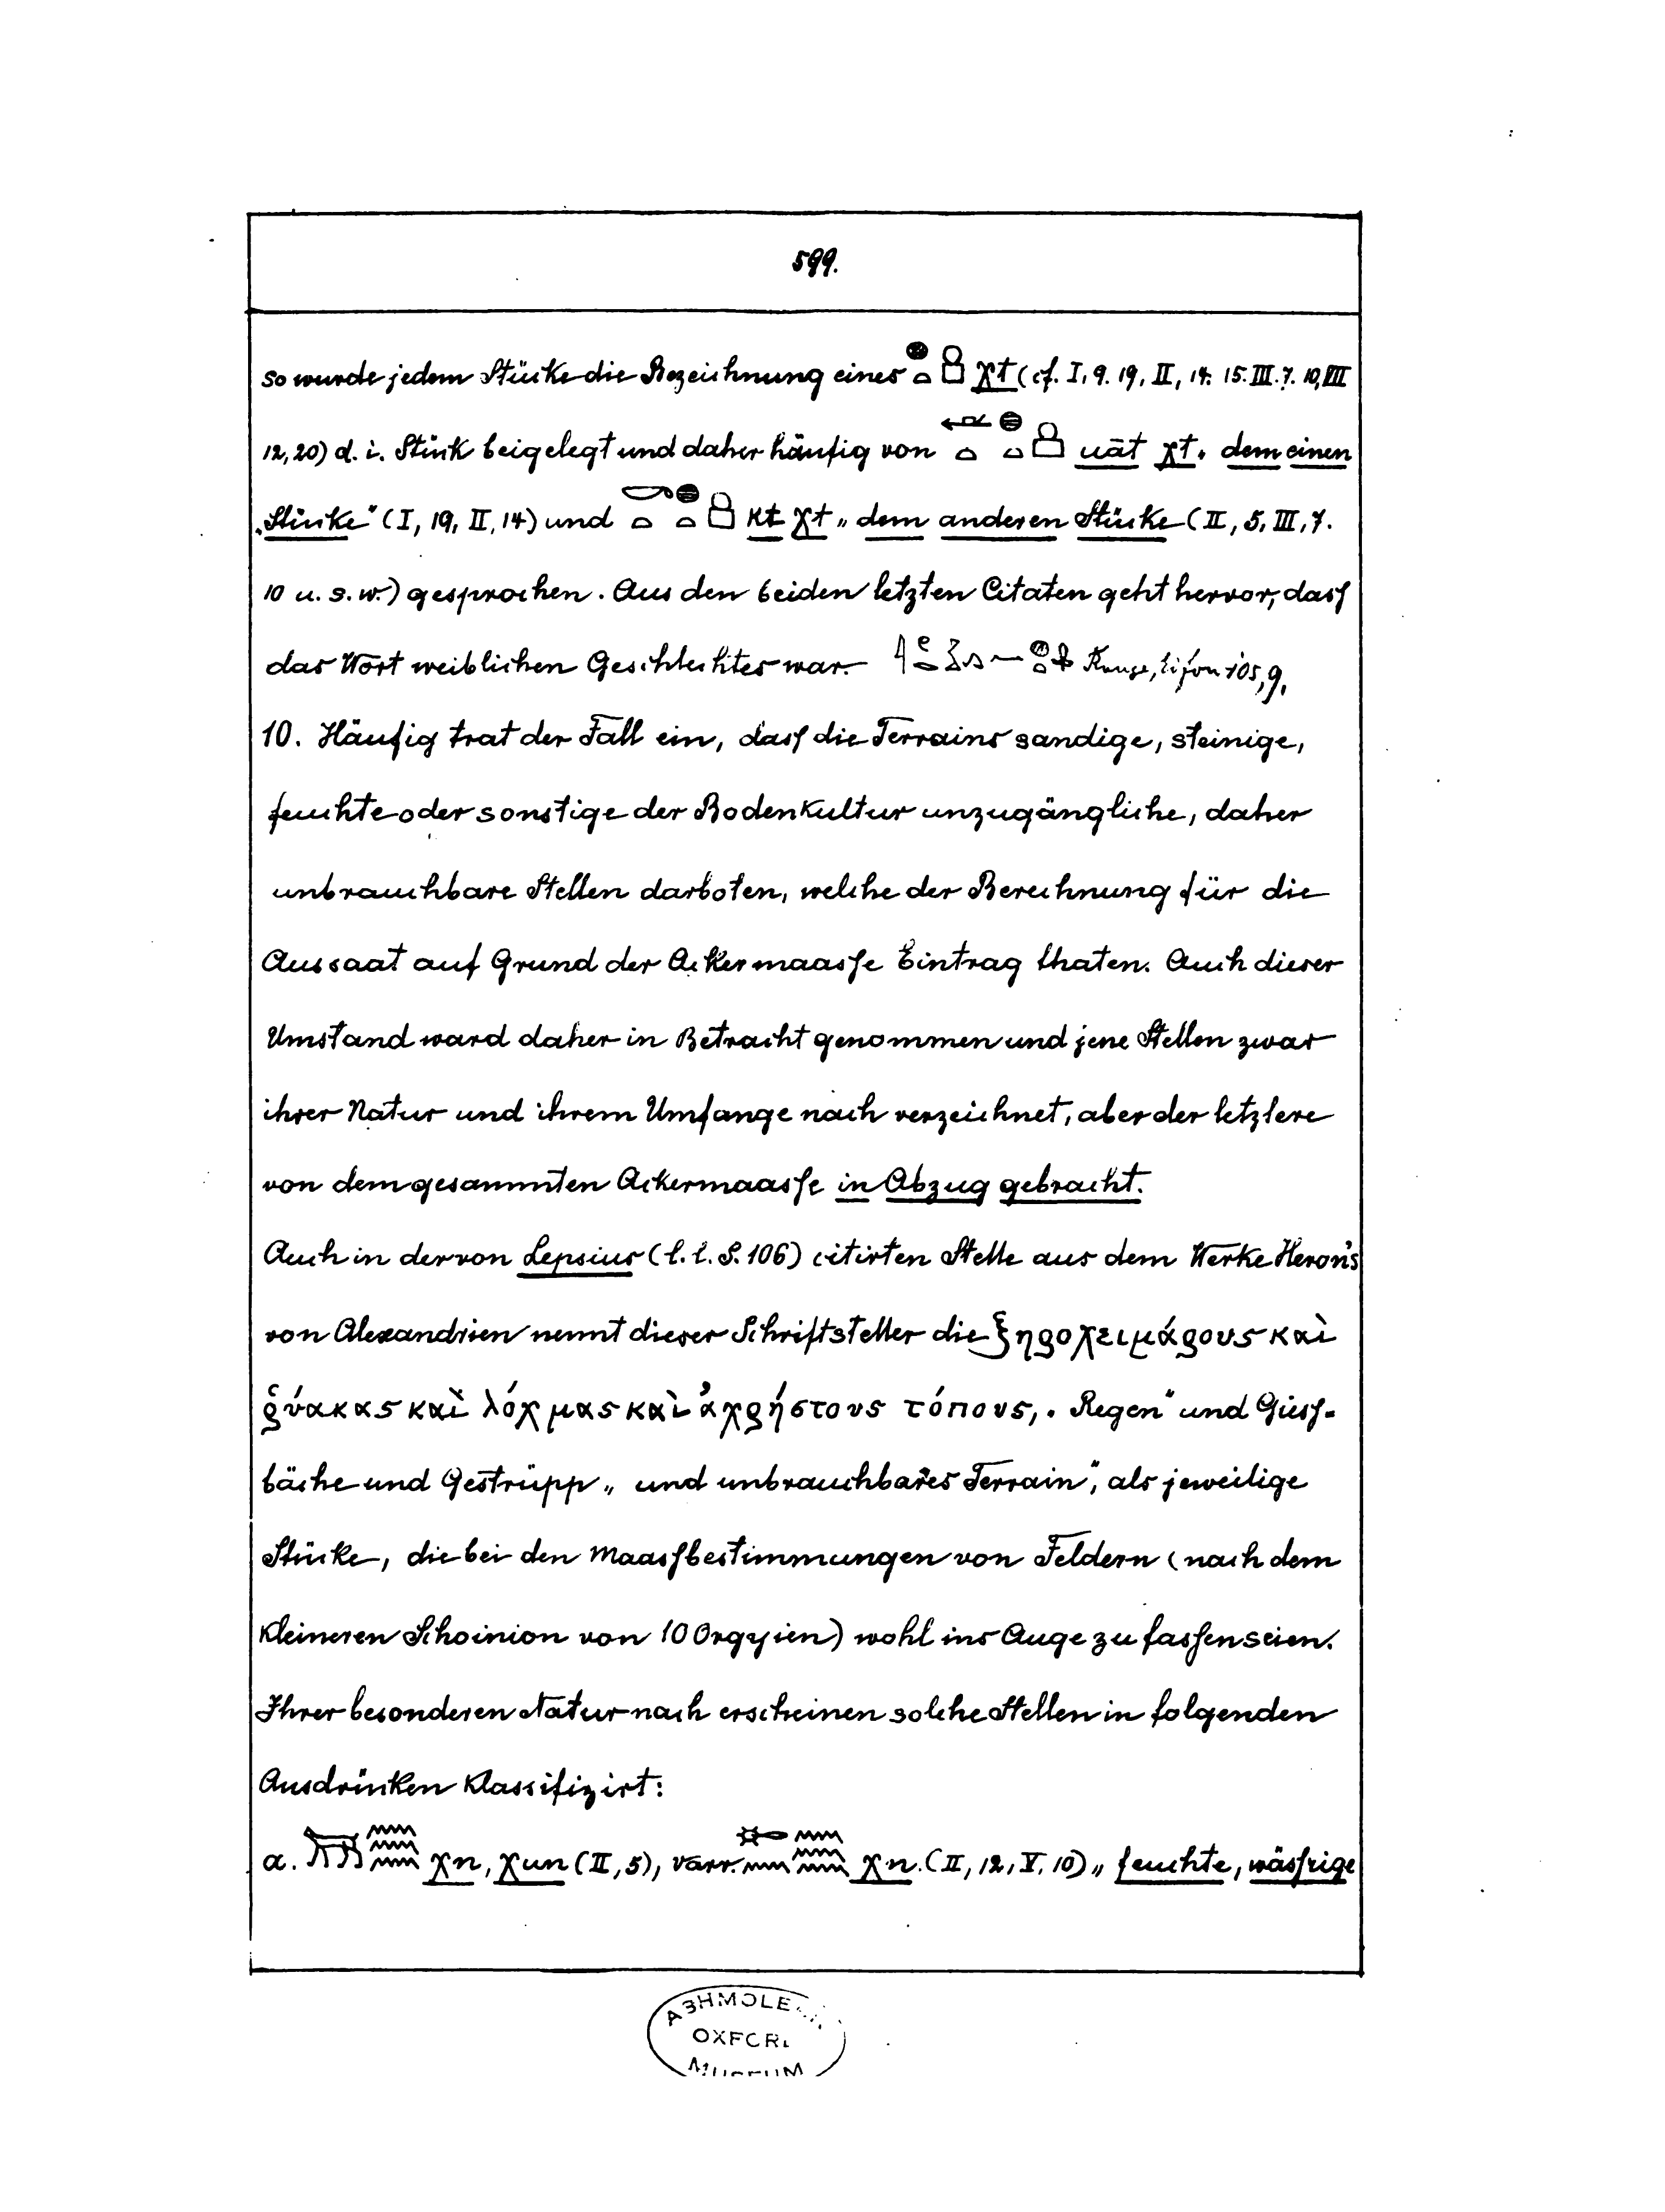 599.
so wurde jedem Stücke die Bezeichnung eines χt (cf. I, 9. 19, II, 14. 15. III. 7. 10, VIII
12, 20) d. i. Stück beigelegt und daher häufig von uāt χt. dem einen
„Stücke" (I, 19, II, 14) und kt χt „dem anderen Stücke (II, 5, III, 7.
10 u. s. w.) gesprochen. Aus den beiden letzten Citaten geht hervor, dass
das Wort weiblichen Geschlechtes war. 105, 9,
10. Häufig trat der Fall ein, dass die Terrains sandige, steinige,
feuchte oder sonstige der Bodenkultur unzugängliche, daher
unbrauchbare Stellen darboten, welche der Berechnung für die
Aussaat auf Grund der Ackermaasse Eintrag thaten. Auch dieser
Umstand ward daher in Betracht genommen und jene Stellen zwar
ihrer Natur und ihrem Umfange nach verzeichnet, aber der letztere
von dem gesammten Ackermaasse in Abzug gebracht.
Auch in der von Lepsius (l. l. S. 106) citirten Stelle aus dem Werke Heron's
von Alexandrien nennt dieser Schriftsteller die ξηροχειμάρους καὶ
ῥύακας καὶ λόχμας καὶ ἀχρήστους τόπους, „Regen" und Giess-
bäche und Gestrüpp „und unbrauchbares Terrain", als jeweilige
Stücke, die bei den Maassbestimmungen von Feldern (nach dem
kleineren Schoinion von 10 Orgyien) wohl ins Auge zu fassen seien.
Ihrer besonderen Natur nach erscheinen solche Stellen in folgenden
Ausdrücken klassifizirt:
a. χn, χun (II, 5), varr. χn. (II, 12, V, 10) „feuchte, wässrige
ASHMOLEAN
OXFORD
MUSEUM